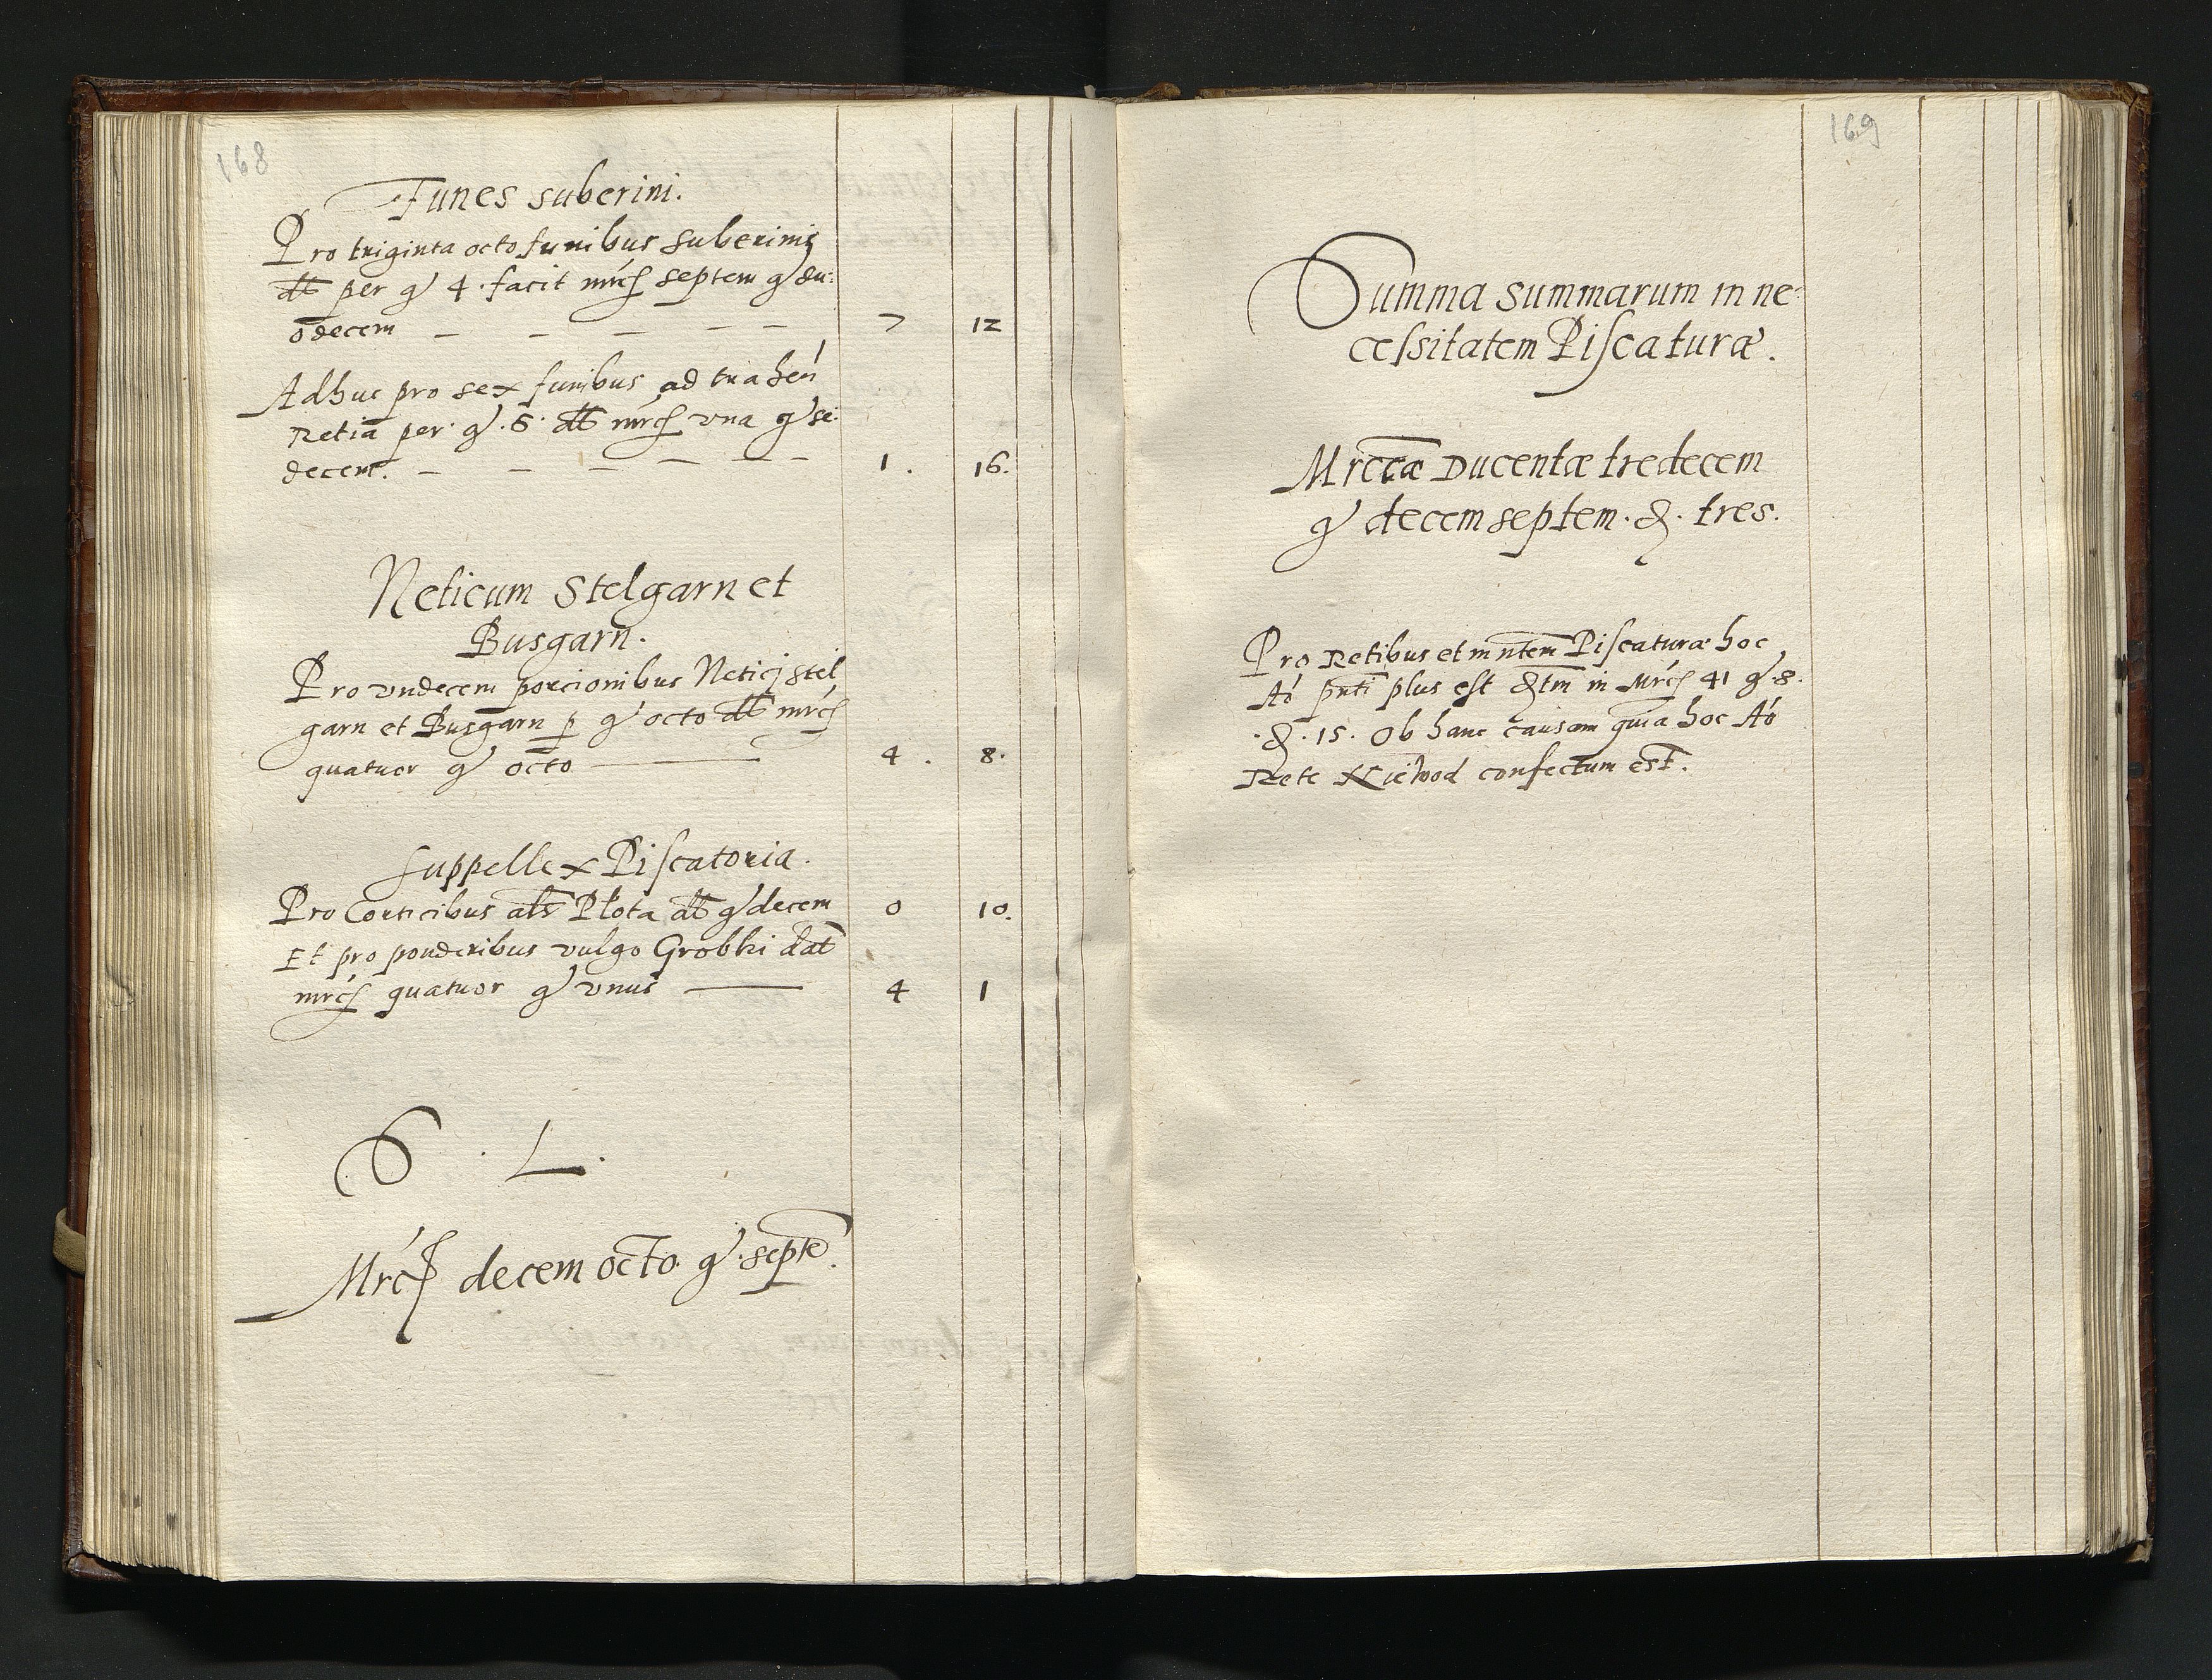 168
Funes suberini.
Pro triginta octo funibus suberinis
dt per gʳ 4. facit mrcs septem gʳ du:
odecem — — — — — 7 12
Adhuc pro sex funibus ad trahen
Retia per gʳ. 6. dt mrcs vna gʳ se:
decem. — — — — — — 1. 16.
Neticum Stelgarn et
Busgarn.
Pro vndecem porcionibus Neticj stel
garn et Busgarn p gʳ octo dt mrcs
quatuor gʳ octo — 4. 8.
Suppellex Piscatoria.
Pro Corticibus als Plota dt gʳ decem 0 10.
Et pro ponderibus vulgo Grobki dat
mrcs quatuor gʳ vnus — 4 1
S. L.
Mrcs decem octo gʳ. septe.
169
Summa summarum in ne:
cessitatem Piscaturæ.
Mrccæ Ducentæ tredecem
gʳ decem septem. ₰. tres.
Pro Retibus et in ntem Piscaturæ hoc
Ao pnti plus est in Mrcs 41 gʳ. 8.
. ₰. 15. Ob hanc causam quia hoc Ao
Rete Niewod confectum est.